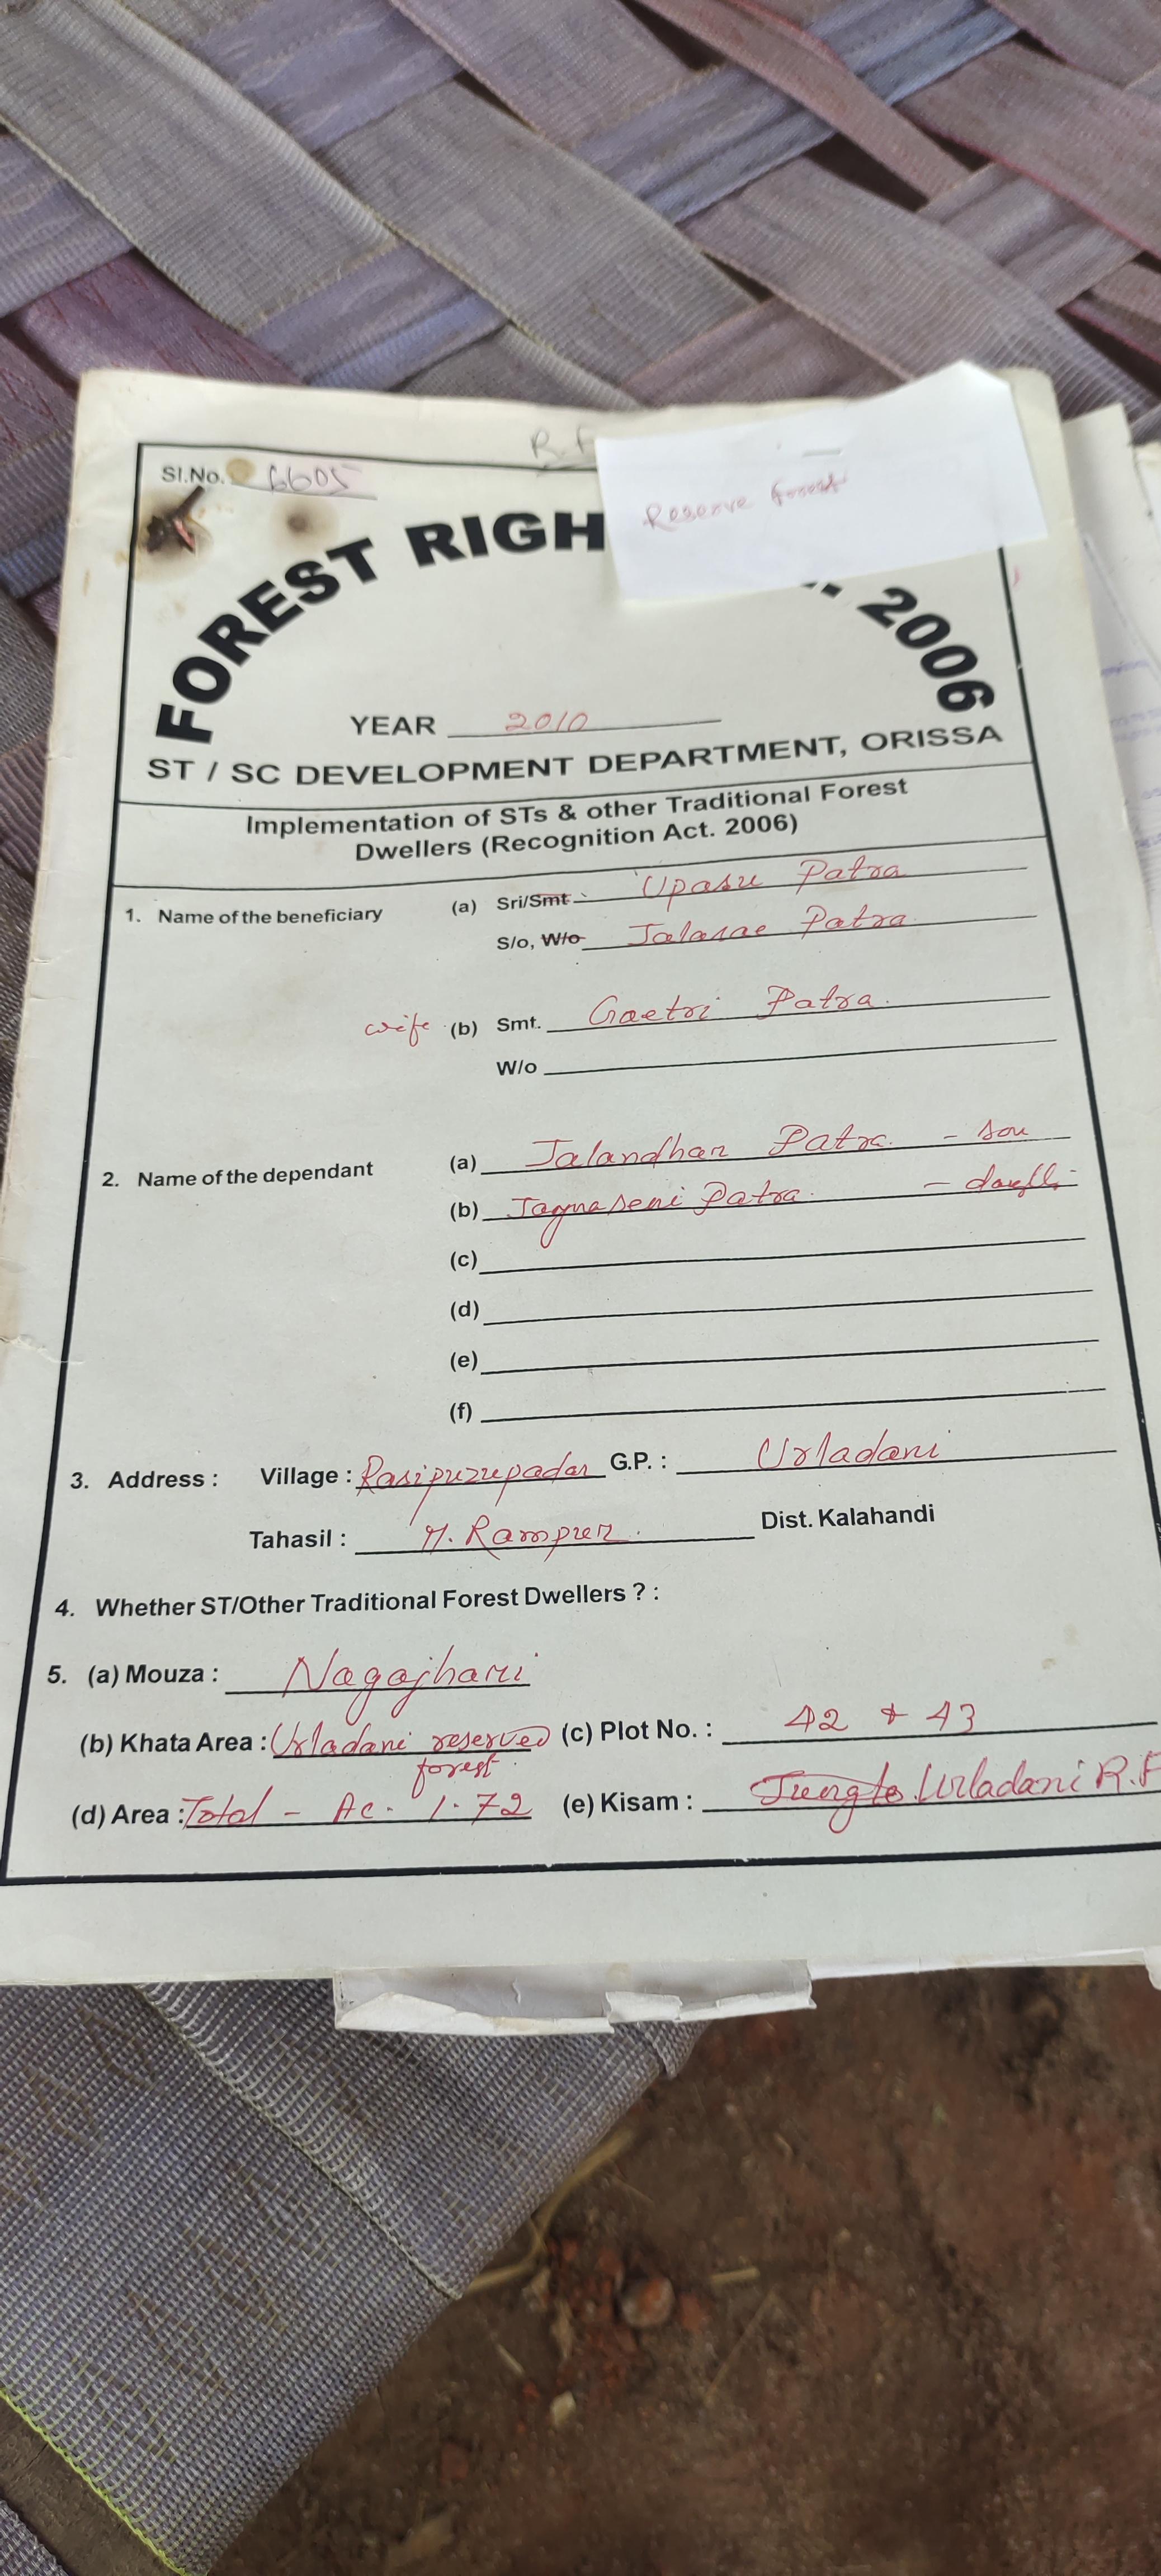 R.F
Reserve forest
Sl.No. 6605
FOREST RIGH . 2006
YEAR 2010
ST / SC DEVELOPMENT DEPARTMENT, ORISSA
Implementation of STs & other Traditional Forest
Dwellers (Recognition Act. 2006)
1. Name of the beneficiary (a) Sri/Smt. Upasu Patra
S/o, W/o Jalarae Patra
wife (b) Smt. Gaetri Patra.
W/o
2. Name of the dependant (a) Jalandhar Patra - son
(b) Jagnaseni Patra.
(c)
(d)
(e)
(f)
3. Address : Village : Rasipuzupadar G.P. : Urladani
Tahasil : M. Rampur. Dist. Kalahandi
4. Whether ST/Other Traditional Forest Dwellers ? :
5. (a) Mouza : Nagajhari
(b) Khata Area : Urladani reserved forest (c) Plot No. : 42 & 43
(d) Area : Total - Ac. 1.72 (e) Kisam : Urladani R.F